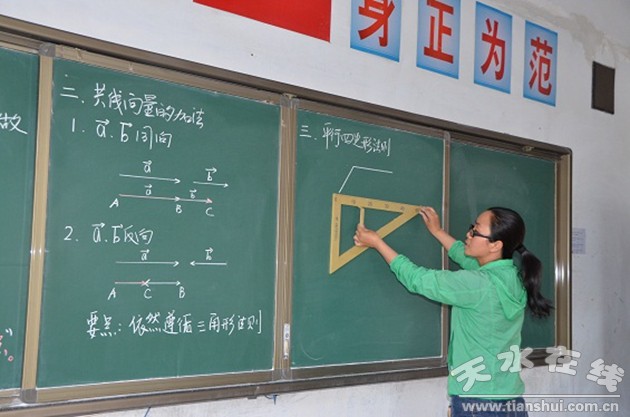 身正为范
做
二、共线向量的加法
1. a⃗.b⃗同向
a⃗ b⃗
a⃗ b⃗
A B C
2. a⃗.b⃗反向
a⃗ b⃗
A C B
要点:依然遵循三角形法则
三、平行四边形法则
天水在线
www.tianshui.com.cn